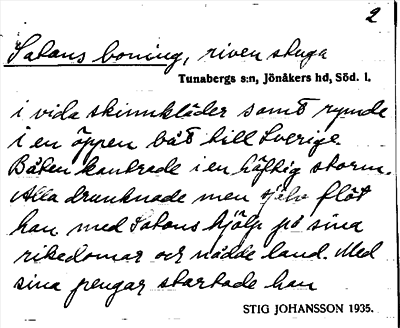 2
Satans boning, riven stuga
Tunabergs s:n, Jönåkers hd, Söd. l.
i vida skinnkläder samt rymde
i en öppen båt till Sverige.
Båten kantrade i en häftig storm.
Alla drunknade men själv flöt
han med Satans hjälp på sina
rikedomar och nådde land. Med
sina pengar startade han
STIG JOHANSSON 1935.